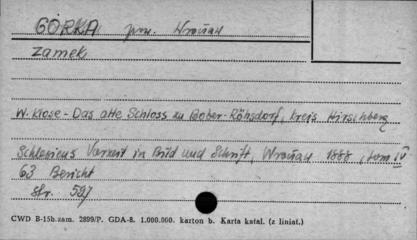 GÓRKA pow. Wrocław
zamek
W. Klose - Das alte Schloss zu Bober-Röhrsdorf, Kreis Hirschberg
Schlesiens Vorzeit in Bild und Schrift, Wrocław 1888, tom IV
63 Bericht
str. 597
CWD B-15b.zam. 2899/P. GDA-8. 1.000.000. karton b. Karta katal. (z liniat.)